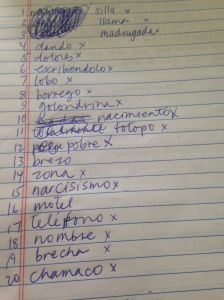 1 silla
2 llama
3 madrugada
4 dando x
5 dolores x
6 escribiendolo x
7 lobo x
8 borrego x
9 golondrina x
10 nacimiento x
11 totopo x
12 pobre x
13 brezo
14 zona x
15 narcisismo x
16 motel
17 telefono x
18 nombre x
19 brecha x
20 chamaco x